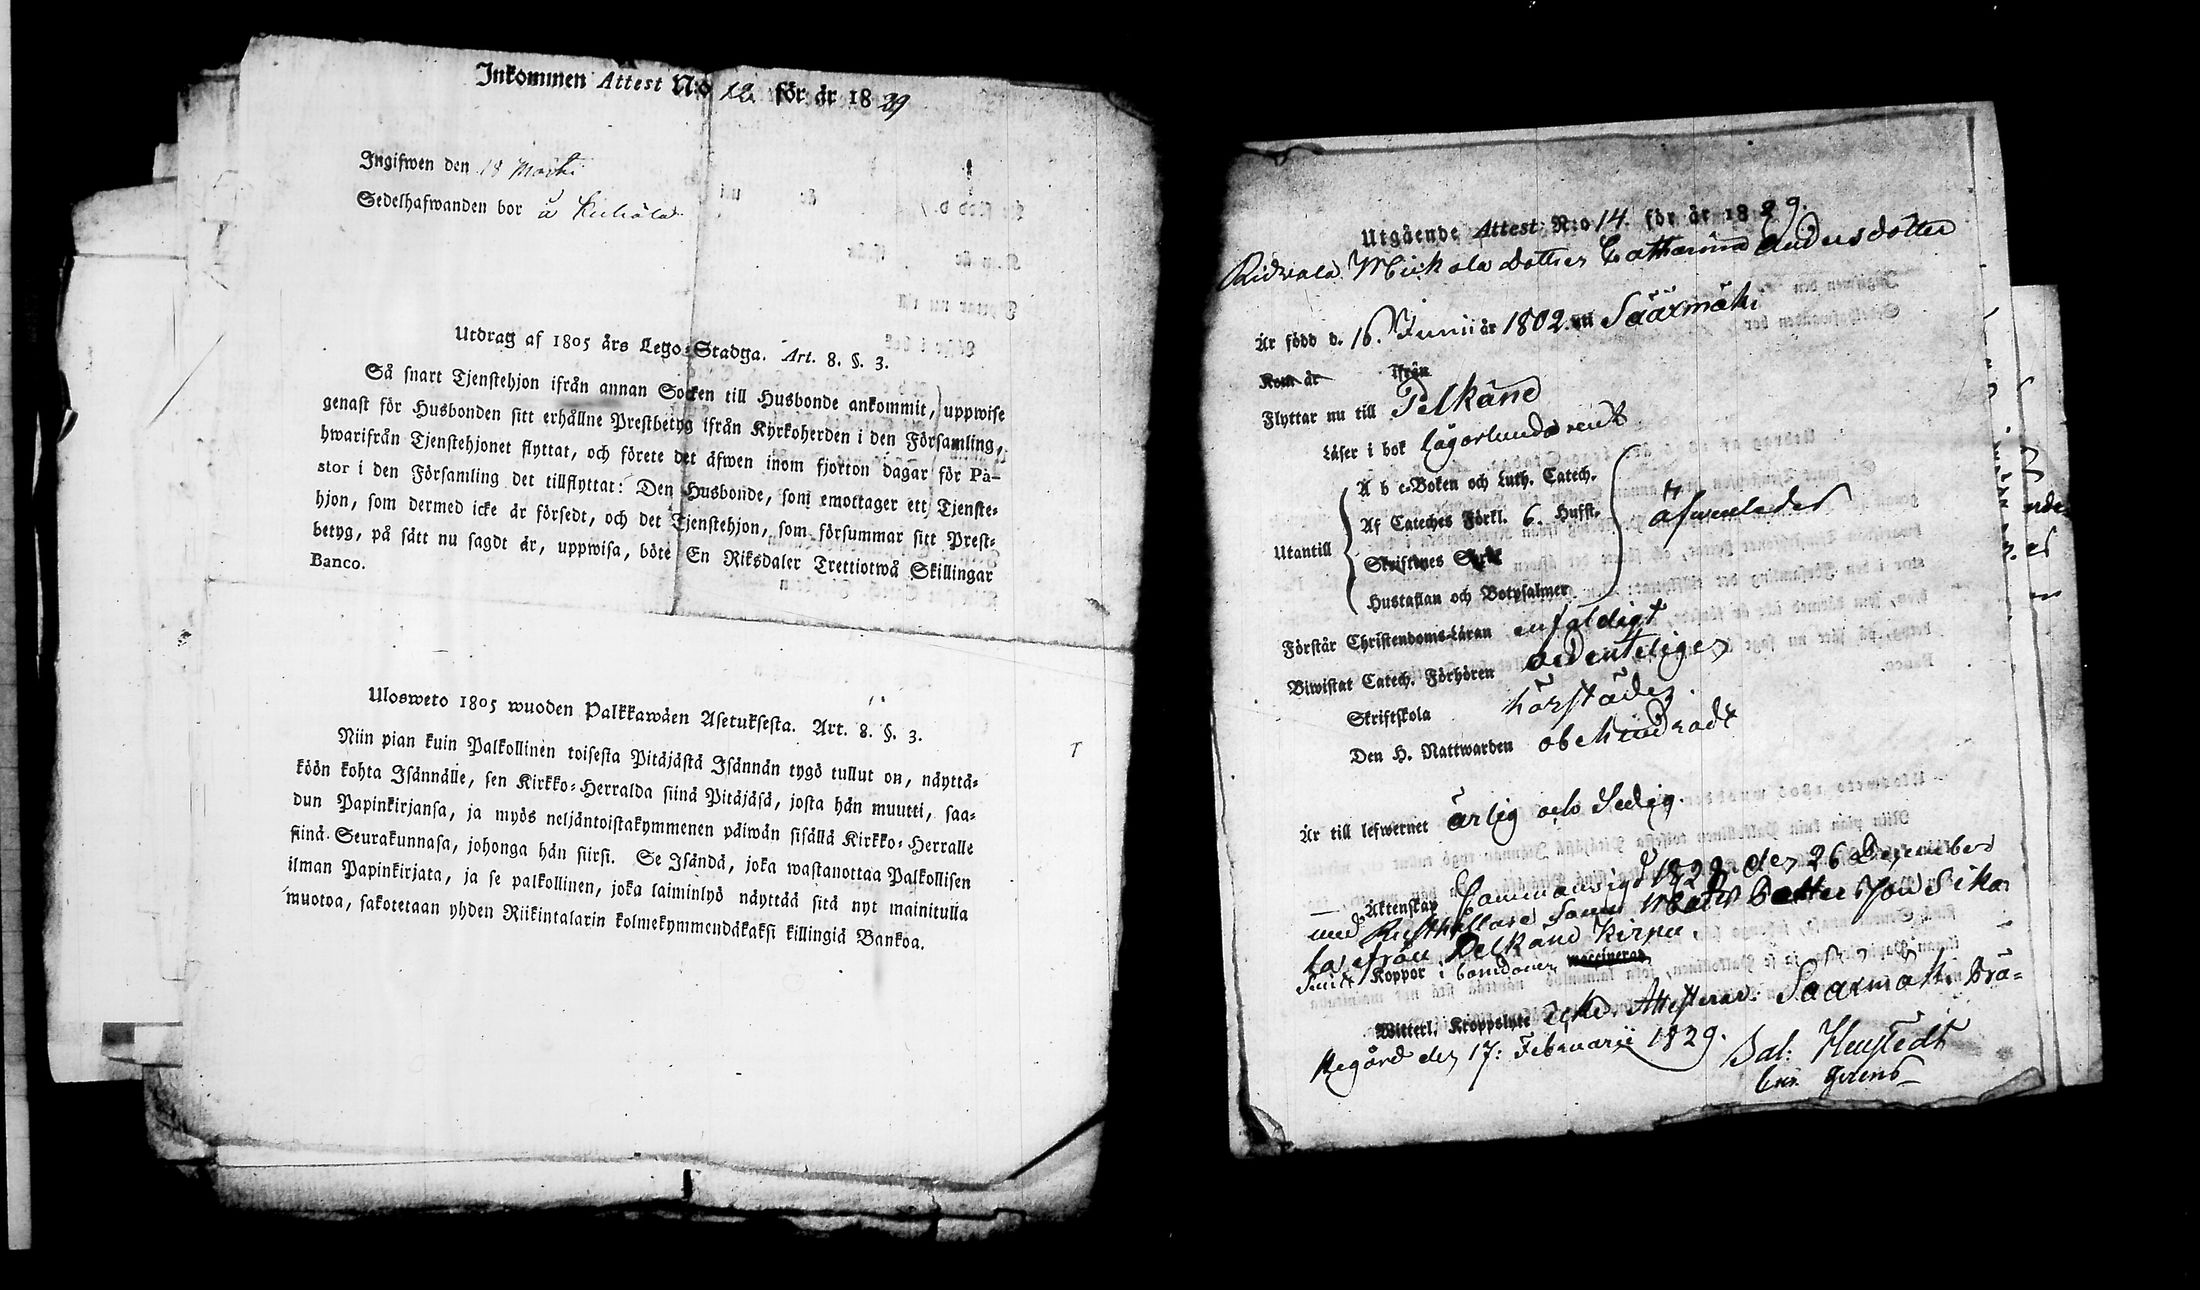 Inkommen Attest N:o 12. för år 1829
Ingifwen den 18 Martii
Sedelhafwanden bor å
Utdrag af 1805 års Lego-Stadga. Art. 8. §. 3.
Så snart Tjenstehjon ifrån annan Socken till Husbonde ankommit, uppwise
genast för Husbonden sitt erhållne Prestbetyg ifrån Kyrkoherden i den Församling,
hwarifrån Tjenstehjonet flyttat, och förete det äfwen inom fjorton dagar för Pa-
stor i den Församling det tillflyttat: Den Husbonde, som emottager ett Tjenste-
hjon, som dermed icke är försedt, och det Tjenstehjon, som försummar sitt Prest-
betyg, på sätt nu sagdt är, uppwisa, böte En Riksdaler Trettiotwå Skillingar
Banco.
Ulosweto 1805 wuoden Palkkawäen Asetuksesta. Art. 8. §. 3.
Niin pian kuin Palkollinen toisesta Pitäjästä Isännän tygö tullut on, näyttä-
köön kohta Isännälle, sen Kirkko-Herralda siinä Pitäjäsä, josta hän muutti, saa-
dun Papinkirjansa, ja myös neljäntoistakymmenen päiwän sisällä Kirkko-Herralle
siinä Seurakunnasa, johonga hän siirsi. Se Isändä, joka wastanottaa Palkollisen
ilman Papinkirjata, ja se palkollinen, joka laiminlyö näyttää sitä nyt mainitulla
muotoa, sakotetaan yhden Riikintalarin kolmekymmendäkaksi killingiä Bankoa.
Utgående Attest N:o 14. för år 1829.
Ridvala Mickola dotter Catharina Andersdotter
Är född d. 16. Junii år 1802 uti Säärmäki
Kom år ifrån
Flyttar nu till Pelkäne
Läser i bok
Utantill
A b c-Boken och Luth. Catech.
Af Cateches Förkl. 6. Hufst.
Skriftenes Språk
Hustaflan och Botpsalmer
äfwenledes
Förstår Christendoms-Läran enfaldigt
Biwistat Catech. Förhören ordenteligen
Skriftskola
Den H. Nattwarden obehindradt
Är till lefwernet ärlig och sedig.
Äktenskap 1828 den 26 December
med Rusthållare Sonen
ifrån Pelkäne
Koppor i barndomen vaccinerad
Witterl. Kroppslyte icke. Attesterar: Saarmäki Prä-
stegård den 17: Februarii 1829.
Sal: